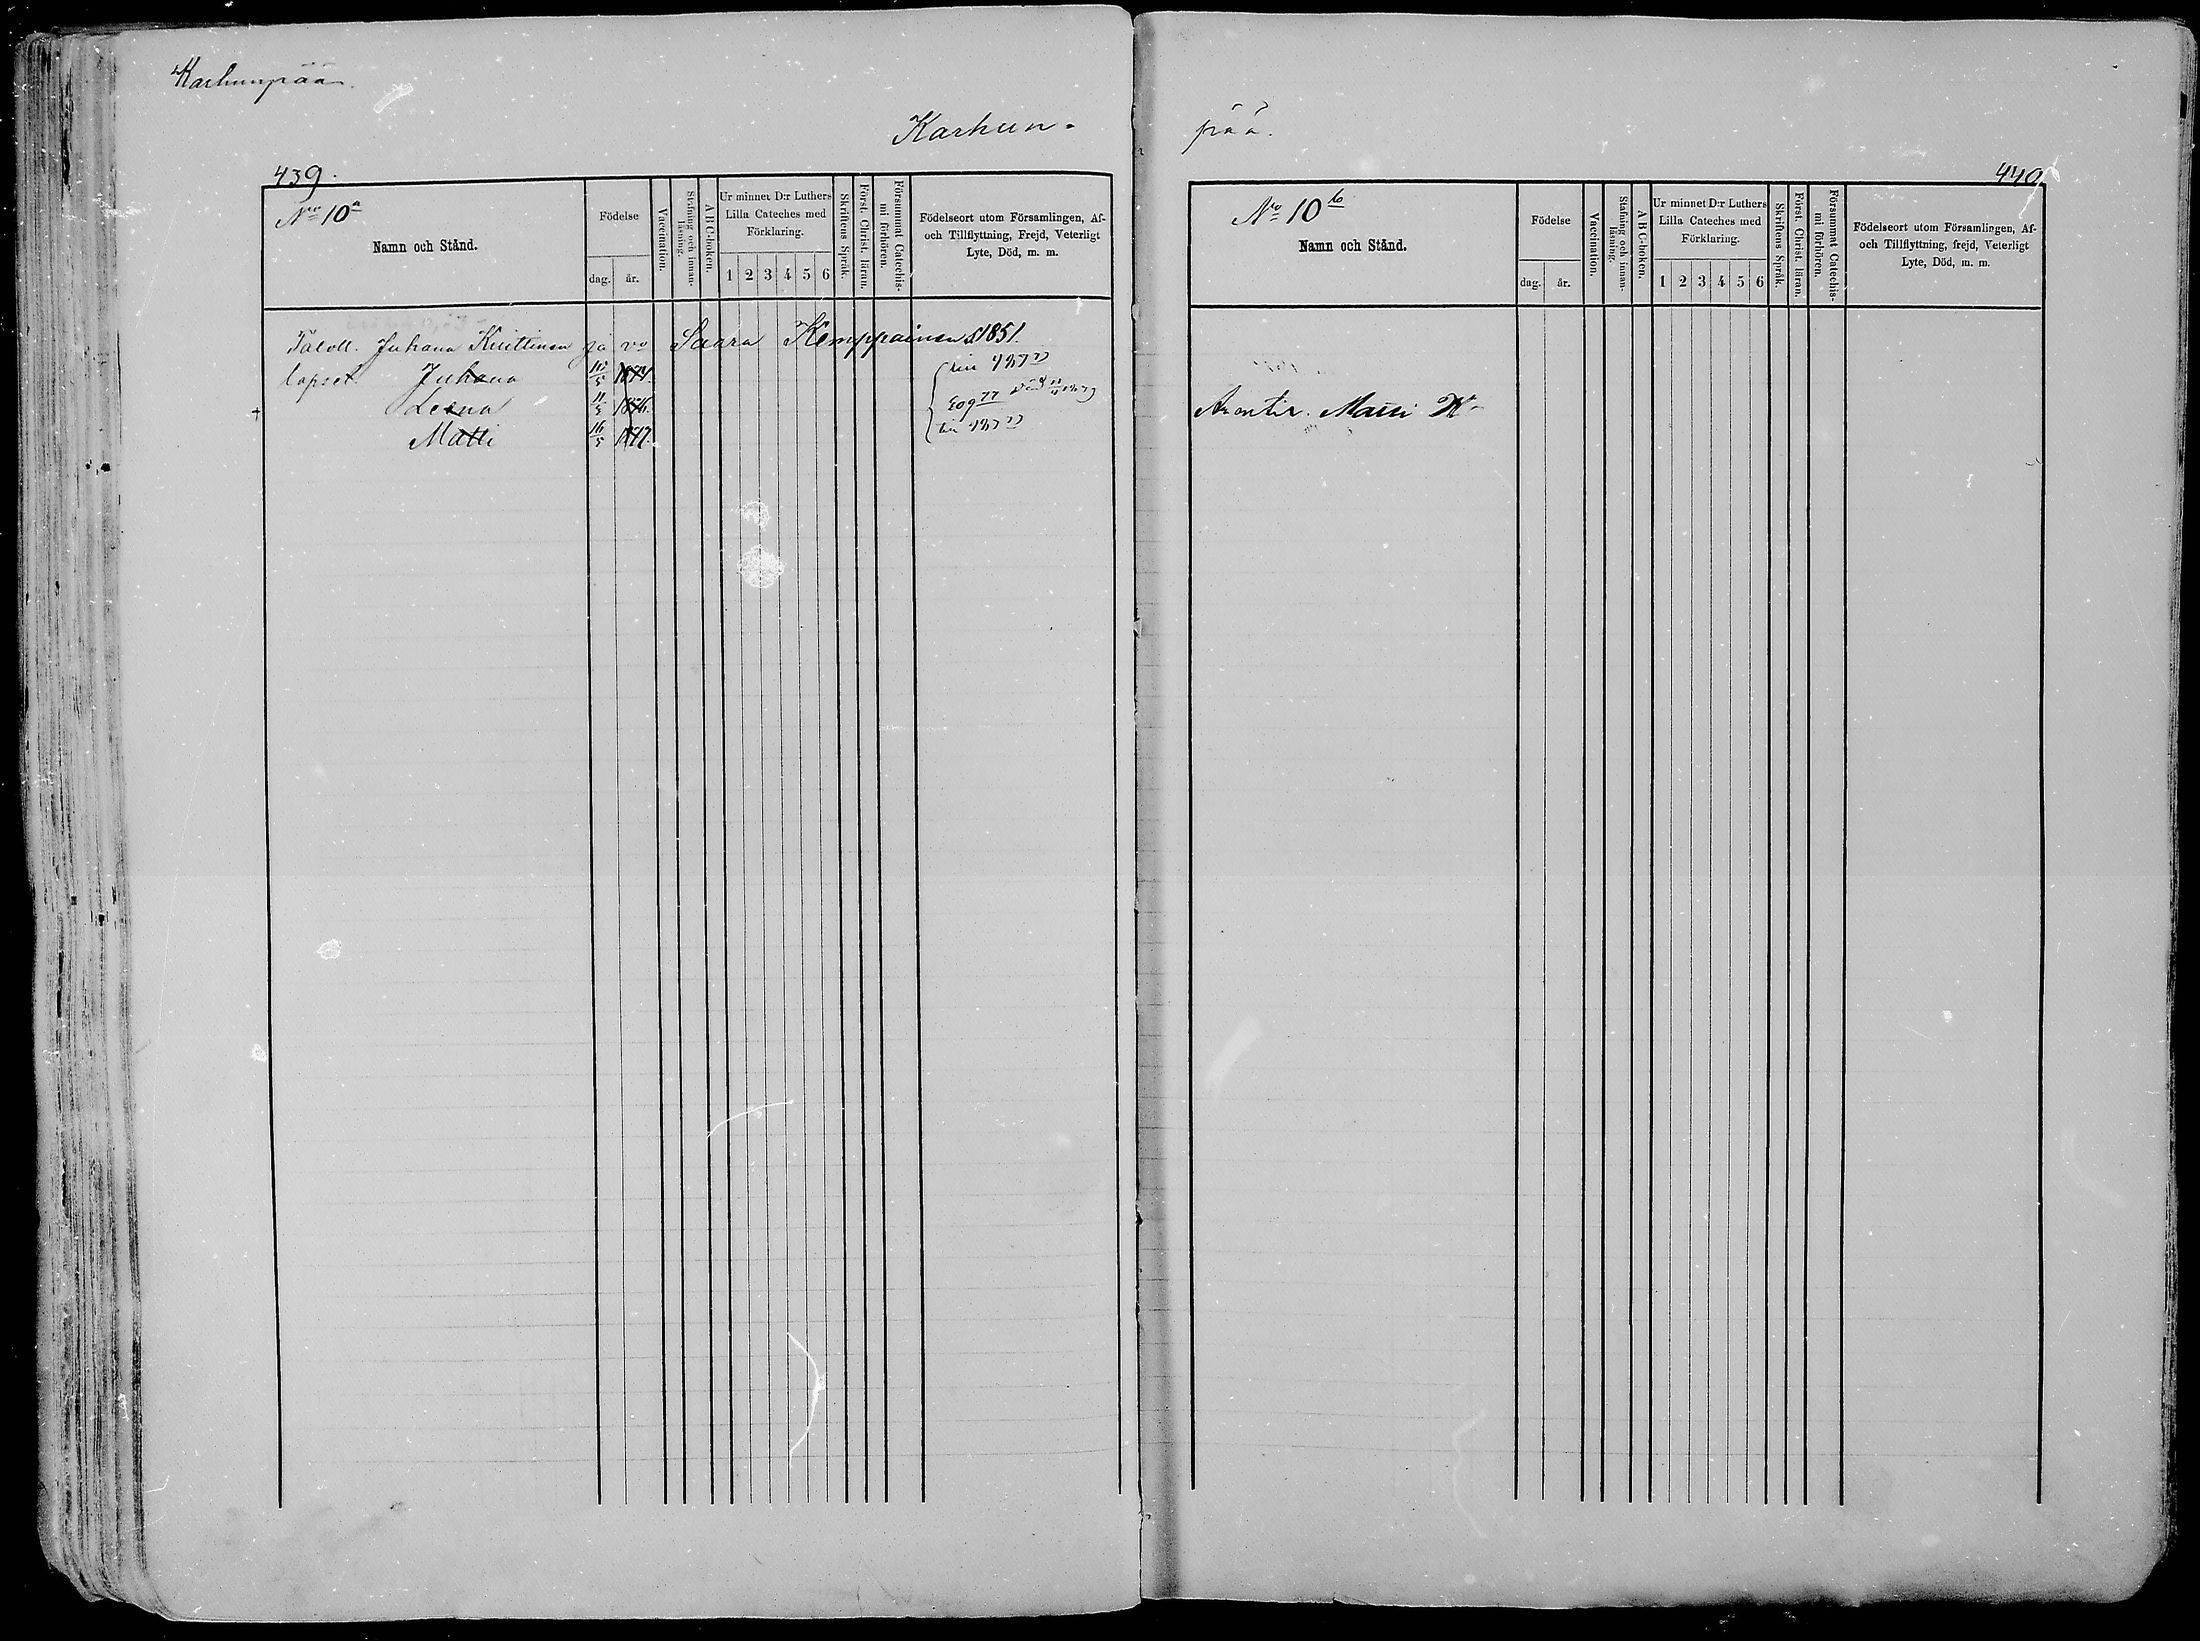 Karhunpää.
Karhun-
439.
No 10a
Namn och Stånd.
Födelse
dag.
år.
Vaccination.
Stafning och innan-
läsning.
A B C-boken.
Ur minnet D:r Luthers
Lilla Cateches med
Förklaring.
1 2 3 4 5 6
Skriftens Språk.
Först. Christ. läran.
Försummat Catechis-
mi förhören.
Födelseort utom Församlingen, Af-
och Tillflyttning, Frejd, Veterligt
Lyte, Död, m. m.
Juhana Kuittinen ja vo Saara Kemppainen 1851.
lapset. Juhana 1874.
Leena 1876.
Matti 16/5 1877.
pää.
440
No 10b
Namn och Stånd.
Födelse
dag.
år.
Vaccination.
Stafning och innan-
läsning.
A B C-boken.
Ur minnet D:r Luthers
Lilla Cateches med
Förklaring.
1 2 3 4 5 6
Skriftens Språk.
Först. Christ. läran.
Försummat Catechis-
mi förhören.
Födelseort utom Församlingen, Af-
och Tillflyttning, frejd, Veterligt
Lyte, Död, m. m.
Matti K